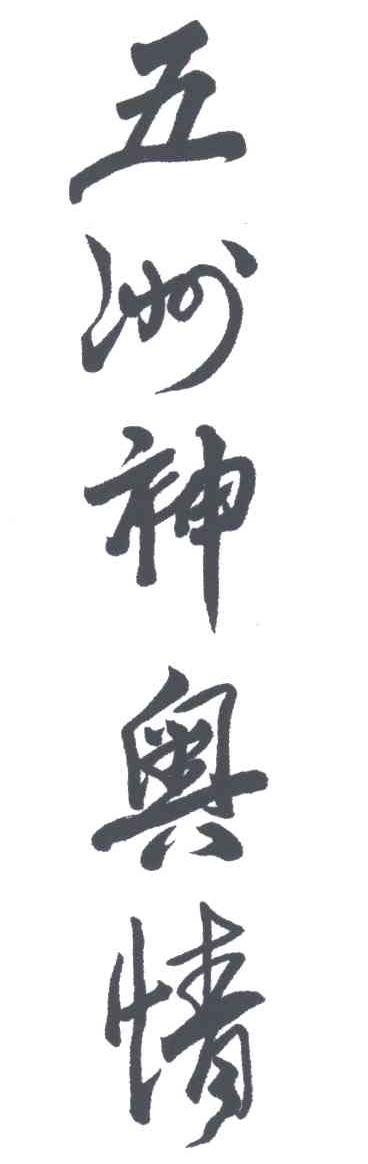 五洲神奥情